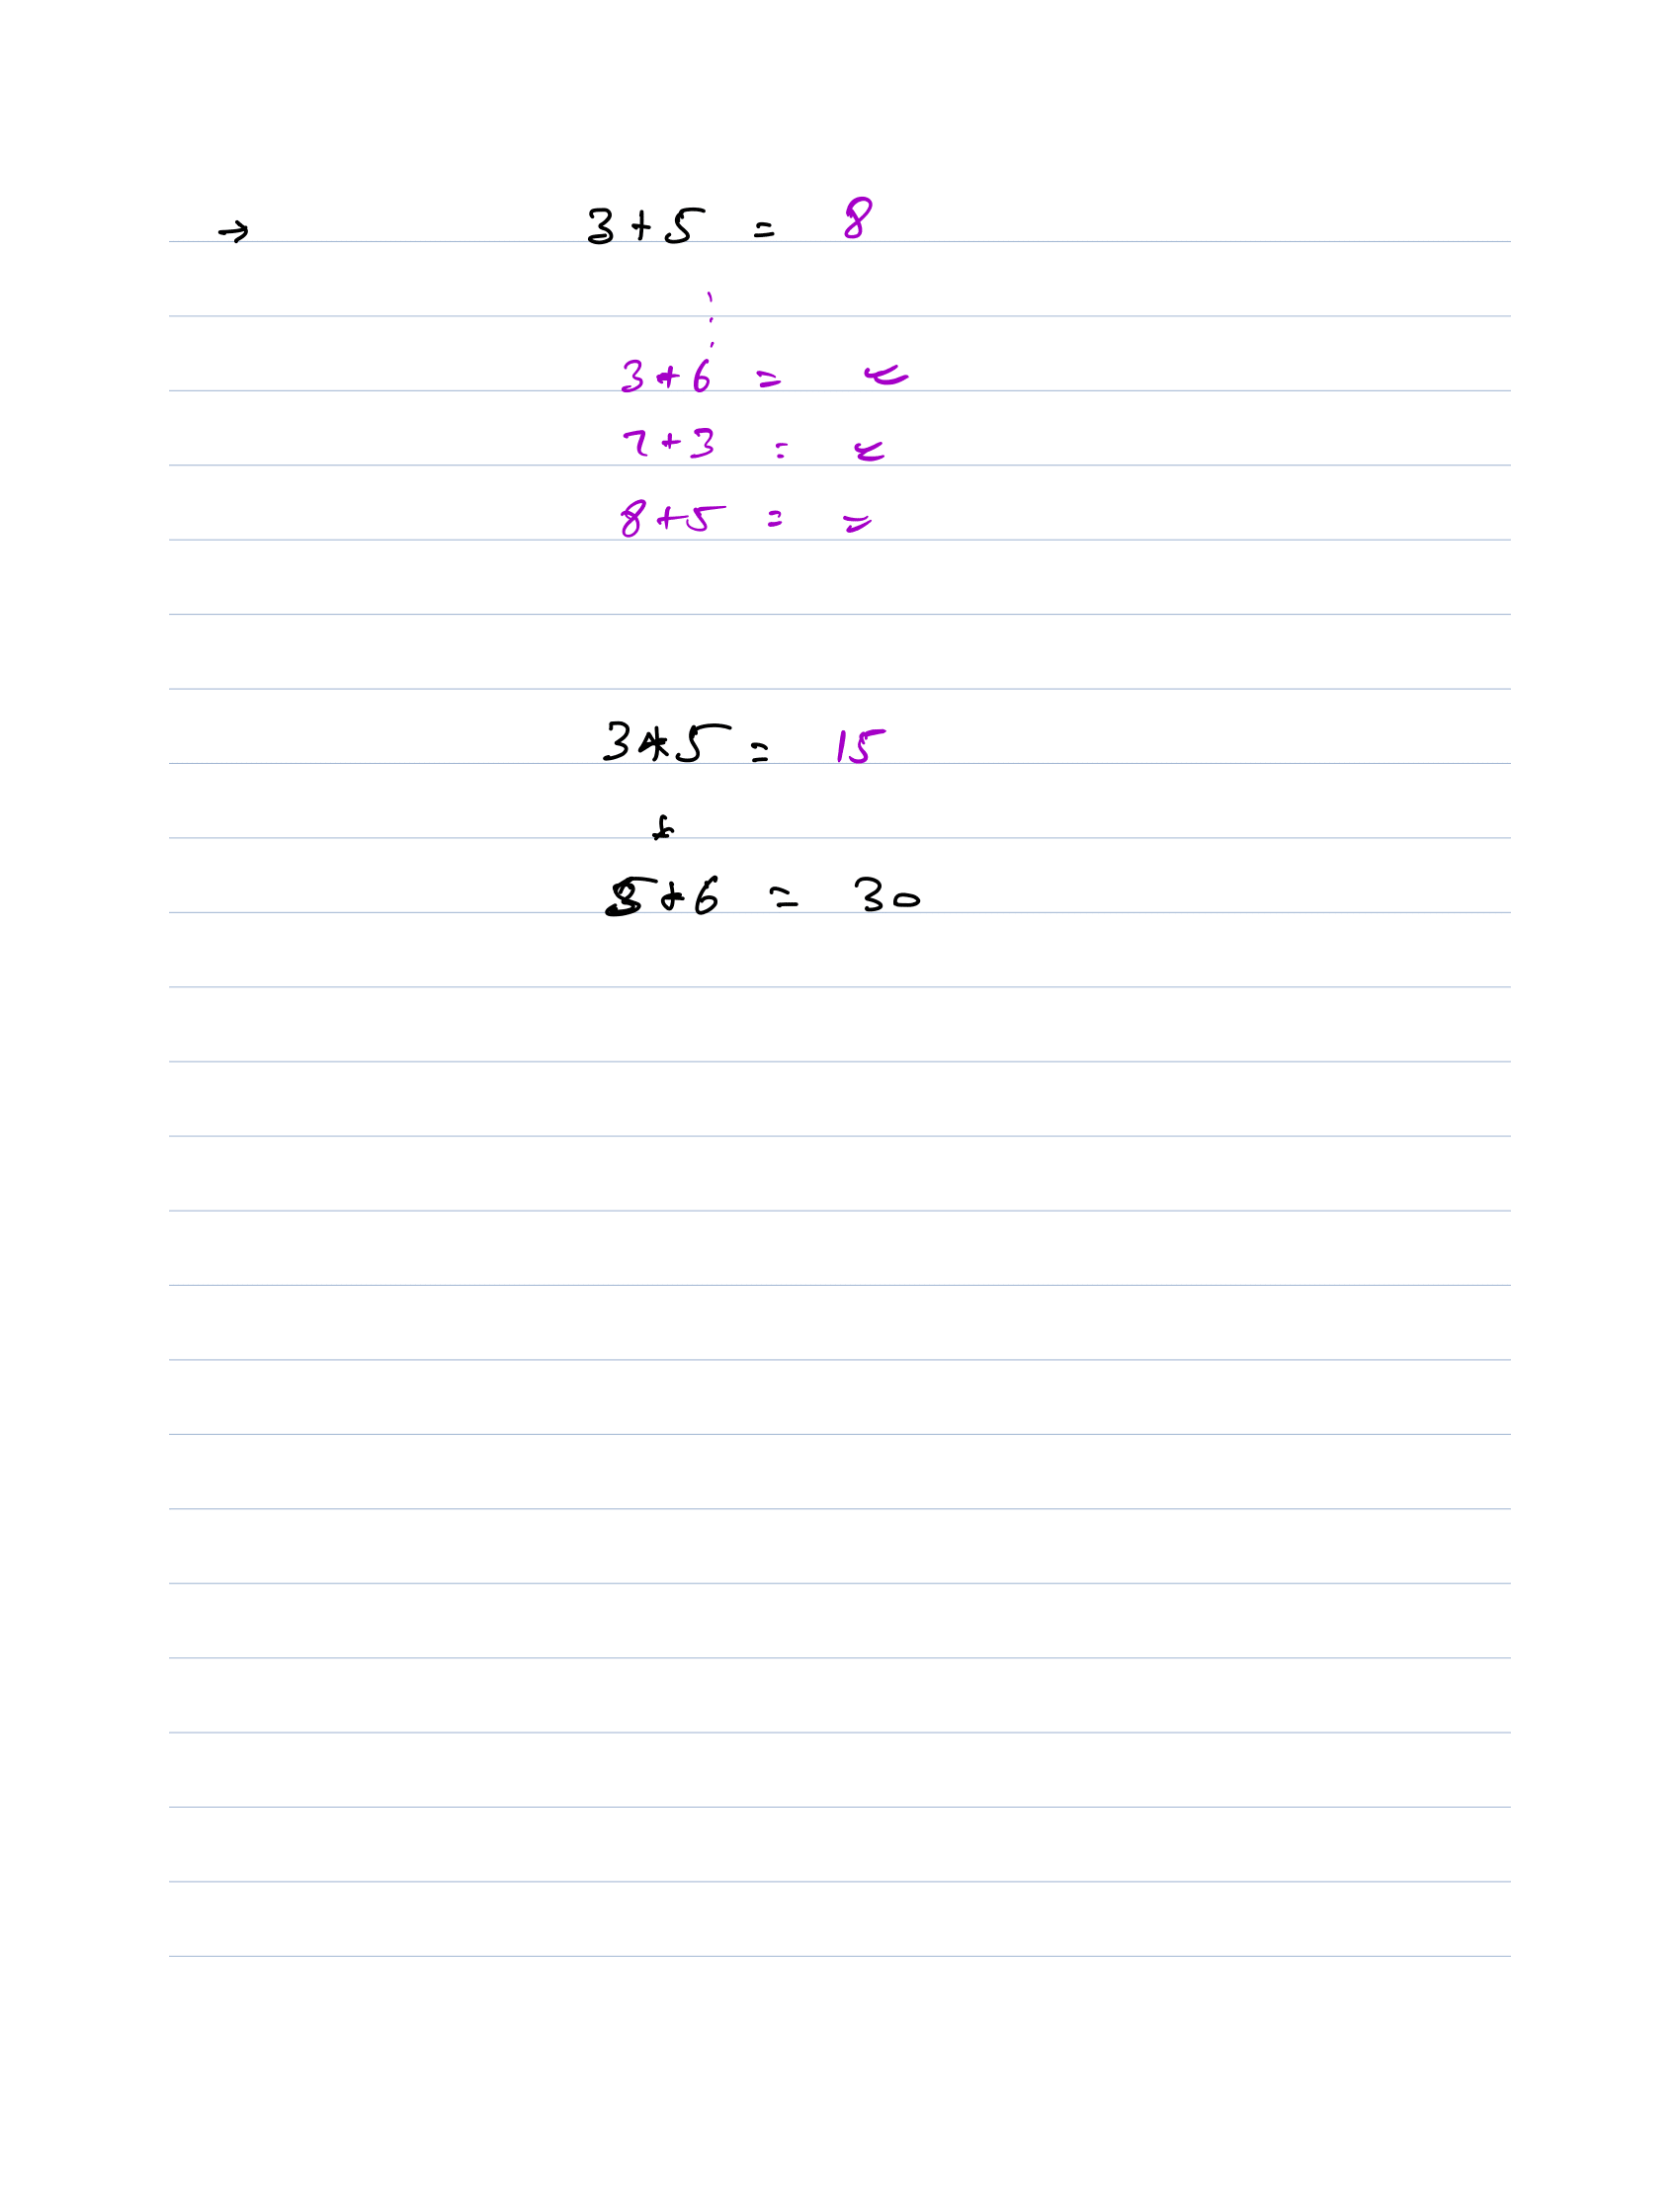 → 3+5 = 8
⋮
3+6 =
2+3 =
8+5 = =
3*5 = 15
*
5+6 = 30